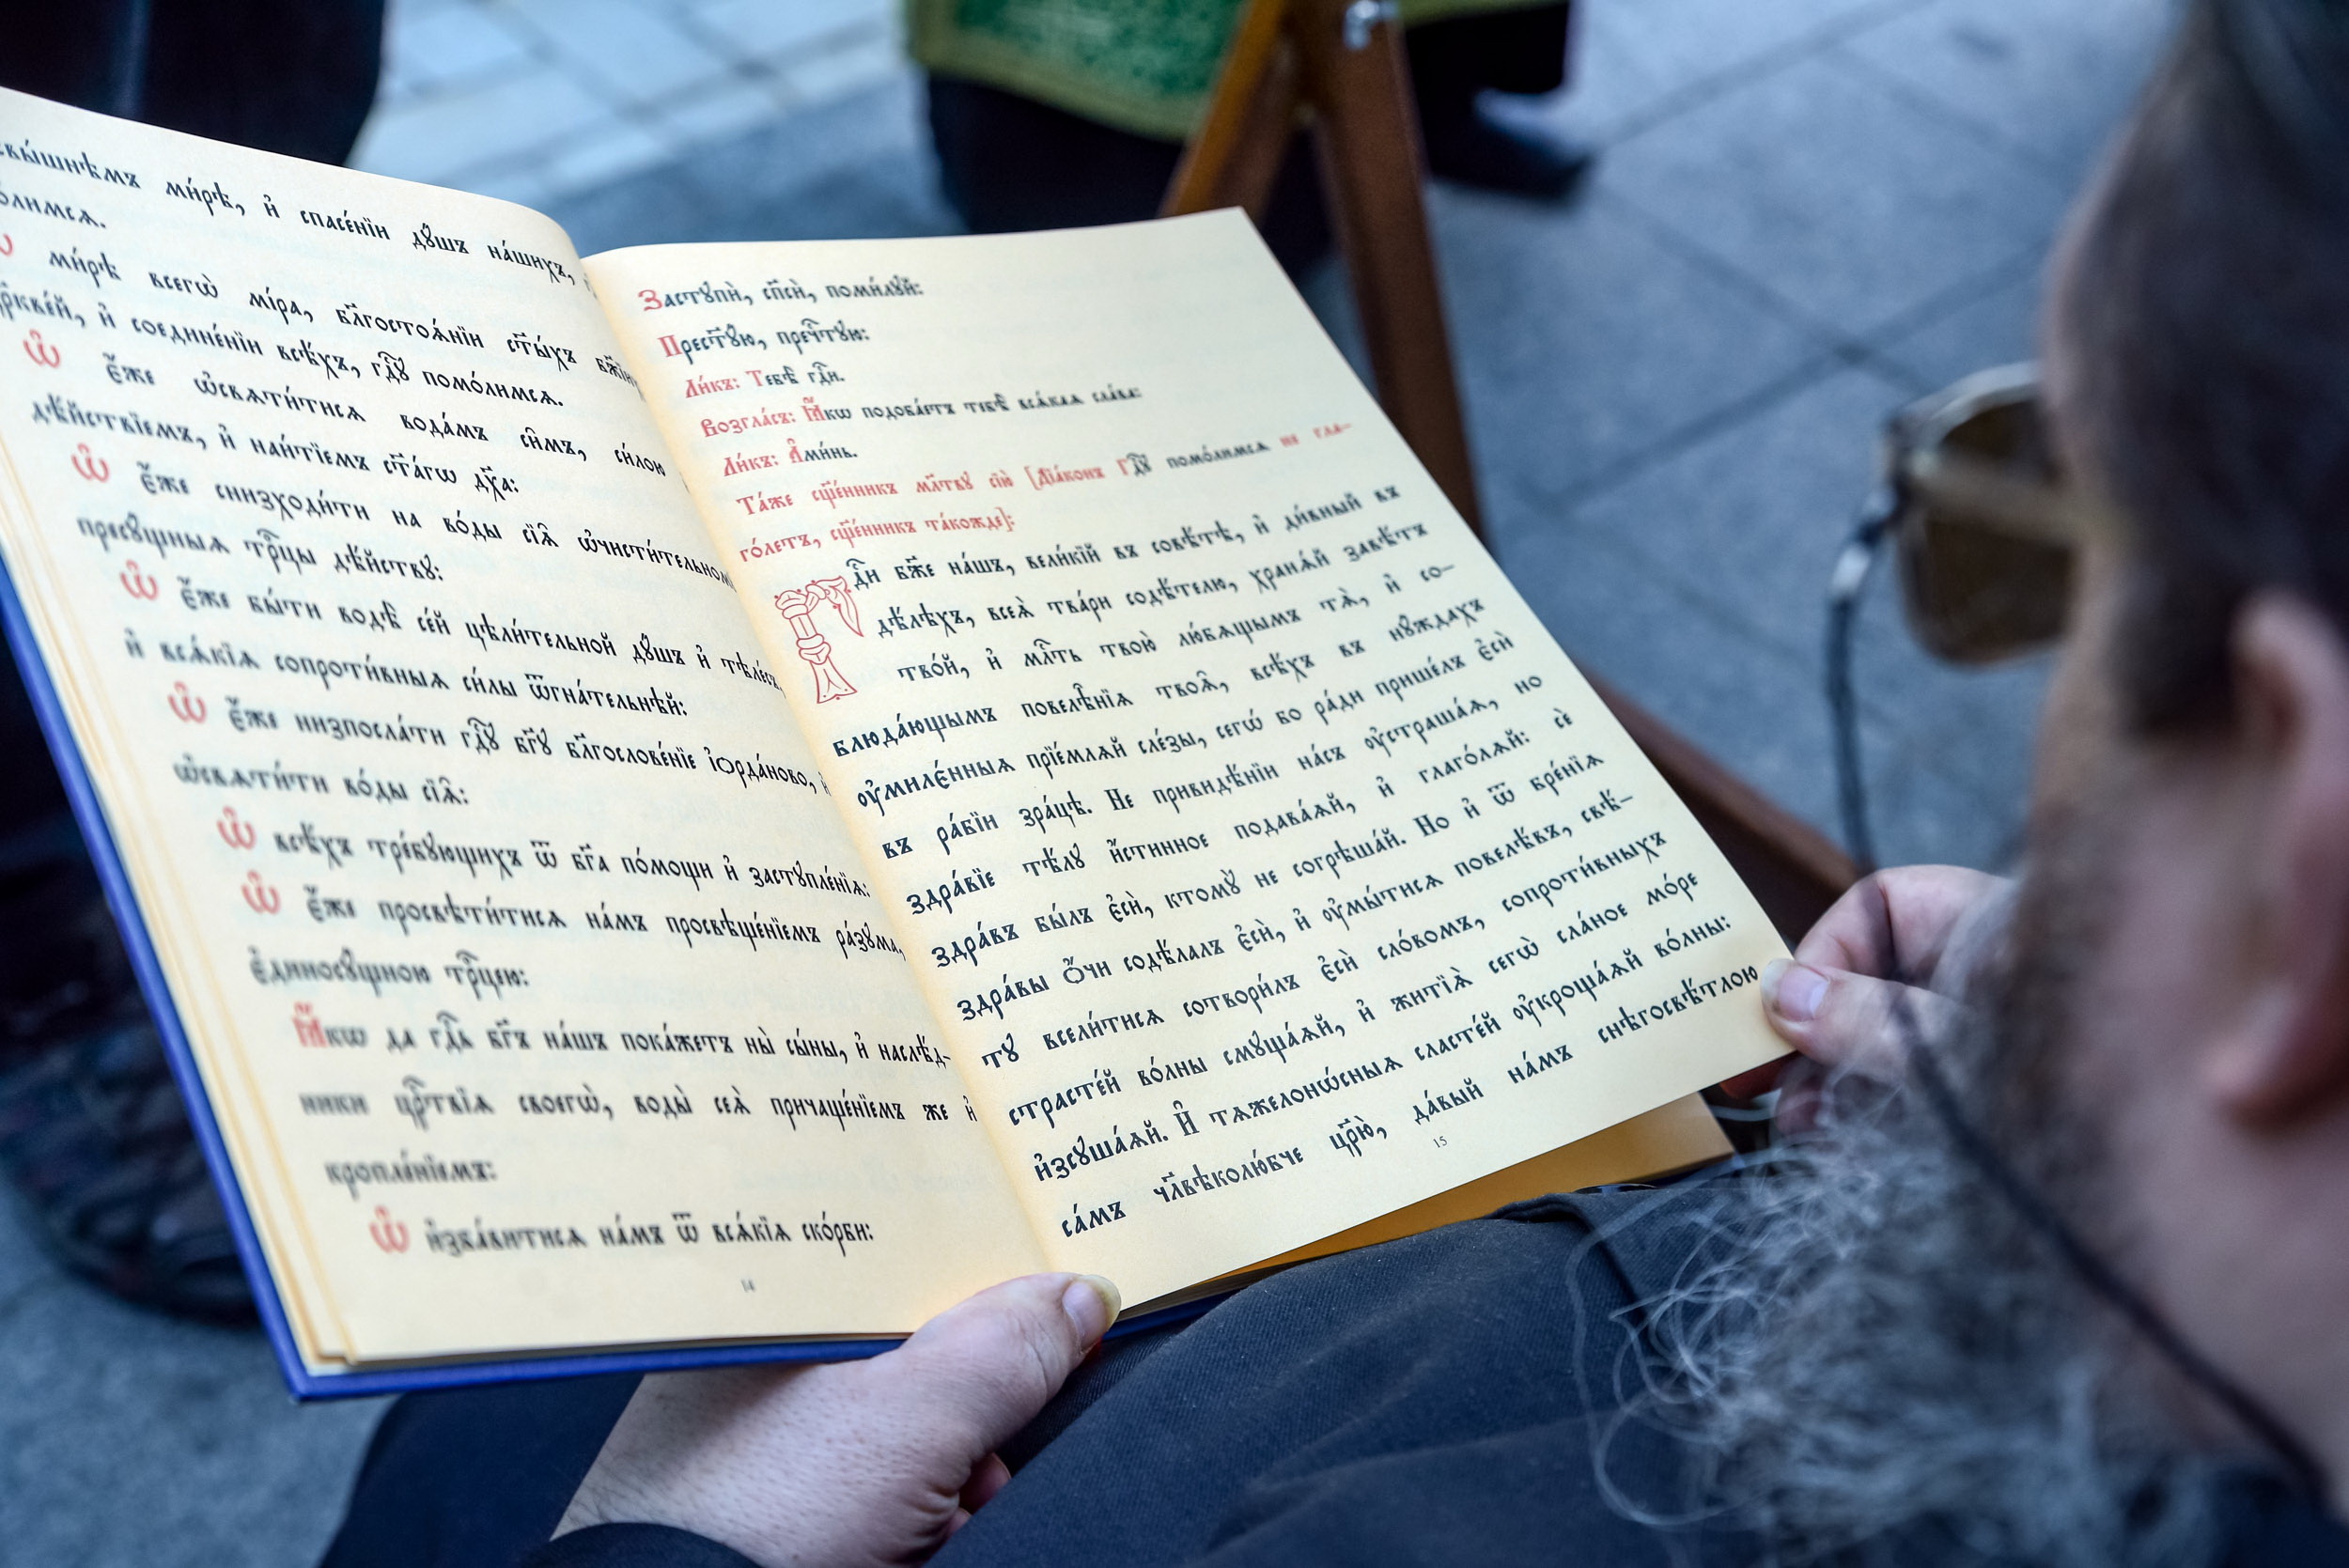 ми́рѣ, и҆ спасе́нїи дꙋ́шъ на́шихъ,
ми́рѣ всегѡ̀ мі́ра, бл҃госто́ѧнїи ст҃ы́хъ
и҆ соедине́нїи всѣ́хъ, гдⷭ҇ꙋ помо́лимсѧ.
Ѡ҆ є҆́же ѡ҆свѧти́тисѧ вода́мъ си̑мъ, си́лою
дѣ́йствїемъ, и҆ наи́тїемъ ст҃а́гѡ дх҃а:
Ѡ҆ є҆́же снизходи́ти на во́ды сїѧ̑ ѡ҆чисти́тельномꙋ
пресꙋ́щныѧ трⷪ҇цы дѣ́йствꙋ:
Ѡ҆ є҆́же бы́ти водѣ̀ се́й цѣли́тельной дꙋ́шъ и҆ тѣле́съ,
и҆ всѧ́кїѧ сопроти́вныѧ си́лы ѿгна́тельнѣй:
Ѡ҆ є҆́же низпосла́ти гдⷭ҇ꙋ бг҃ꙋ бл҃гослове́нїе і҆ѻрда́ново, и҆
ѡ҆свѧти́ти во́ды сїѧ̑:
Ѡ҆ всѣ́хъ тре́бꙋющихъ ѿ бг҃а по́мощи и҆ застꙋпле́нїѧ:
Ѡ҆ є҆́же просвѣти́тисѧ на́мъ просвѣще́нїемъ ра́зꙋма,
є҆диносꙋ́щною трⷪ҇цею:
Ꙗ҆́кѡ да гдⷭ҇ь бг҃ъ на́шъ пока́жетъ ны̀ сы́ны, и҆ наслѣ́д-
ники црⷭ҇твїѧ своегѡ̀, воды̀ сеѧ̀ причаще́нїемъ же и҆
кропле́нїемъ:
Ѡ҆ и҆зба́витисѧ на́мъ ѿ всѧ́кїѧ ско́рби:
14
Застꙋпѝ, сп҃сѝ, поми́лꙋй:
Прест҃ꙋ́ю, пречⷭ҇тꙋю:
Ли́къ: Тебѣ̀ гдⷭ҇и.
Возгла́съ: Ꙗ҆́кѡ подоба́етъ тебѣ̀ всѧ́каѧ сла́ва:
Ли́къ: А҆ми́нь.
Та́же сщ҃е́нникъ мл҃твꙋ сїю̀ [Дїа́конъ Гдⷭ҇ꙋ помо́лимсѧ не гла-
го́летъ, сщ҃е́нникъ та́кожде]:
Гдⷭ҇и бж҃е на́шъ, вели́кїй въ совѣ́тѣ, и҆ ди́вный въ
дѣ́лѣхъ, всеѧ̀ тва́ри содѣ́телю, хранѧ́й завѣ́тъ
тво́й, и҆ млⷭ҇ть твою̀ лю́бѧщымъ тѧ̀, и҆ со-
блюда́ющымъ повелѣ̑нїѧ твоѧ̑, всѣ́хъ въ нꙋ́ждахъ
ᲂу҆миле́нныѧ прїе́млѧй сле́зы, сегѡ́ бо ра́ди прише́лъ є҆сѝ
въ ра́бїи зра́цѣ. Не привидѣ́нїи на́съ ᲂу҆страша́ѧ, но
здра́вїе тѣ́лꙋ и҆́стинное подава́ѧй, и҆ глаго́лѧй: сѐ
здра́въ бы́лъ є҆сѝ, ктомꙋ̀ не согрѣша́й. Но и҆ ѿ бре́нїѧ
здра́вы ѻ҆́чи содѣ́лалъ є҆сѝ, и҆ ᲂу҆мы́тисѧ повелѣ́въ, свѣ́-
тꙋ всели́тисѧ сотвори́лъ є҆сѝ сло́вомъ, сопроти́вныхъ
страсте́й во́лны смꙋща́ѧй, и҆ житїѧ̀ сегѡ̀ сла́ное мо́ре
и҆зсꙋша́ѧй. И҆ тѧжелонѡ́сныѧ сласте́й ᲂу҆кроща́ѧй во́лны:
са́мъ чл҃вѣколю́бче цр҃ю̀, да́вый на́мъ снѣгосвѣ́тлою
15